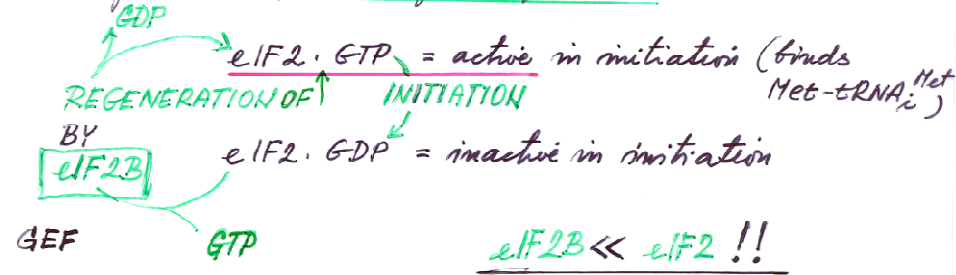 GDP
eIF2 · GTP = active in initiation (binds
Met-tRNAiMet)
REGENERATION OF INITIATION
BY
eIF2B eIF2 · GDP = inactive in initiation
GEF GTP eIF2B << eIF2 !!